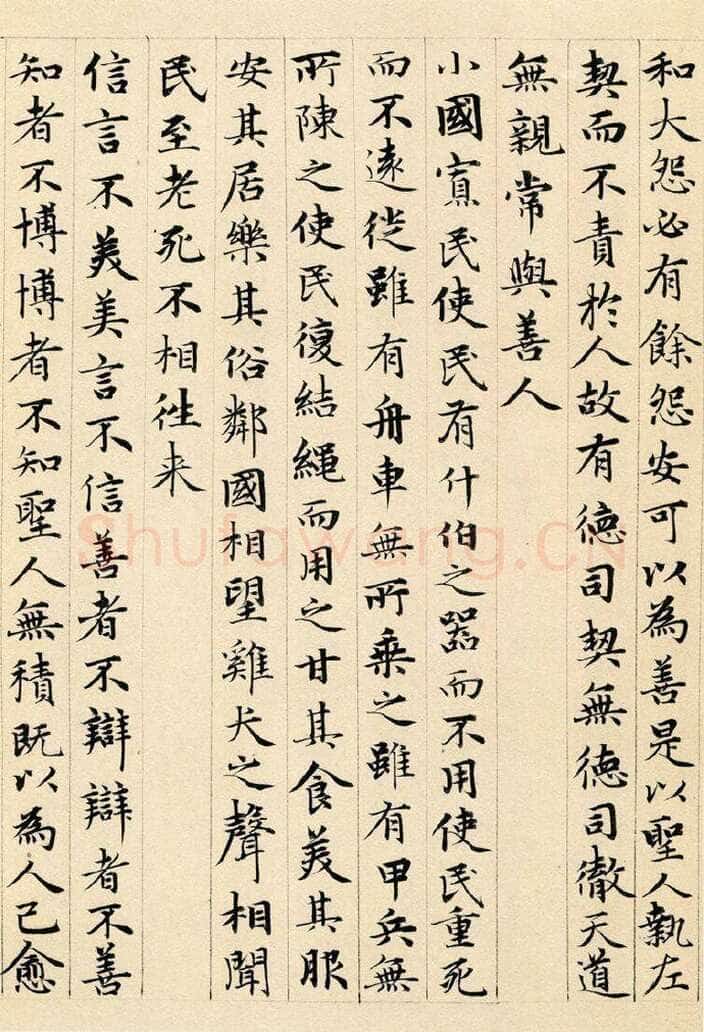 和大怨必有餘怨安可以為善是以聖人執左
契而不責於人故有德司契無德司徹天道
無親常與善人
小國寡民使民有什伯之器而不用使民重死
而不遠徙雖有舟車無所乗之雖有甲兵無
所陳之使民復結繩而用之甘其食美其服
安其居樂其俗鄰國相望雞犬之聲相聞
民至老死不相往来
信言不美美言不信善者不辯辯者不善
知者不博博者不知聖人無積既以為人己愈
Shufawang.CN